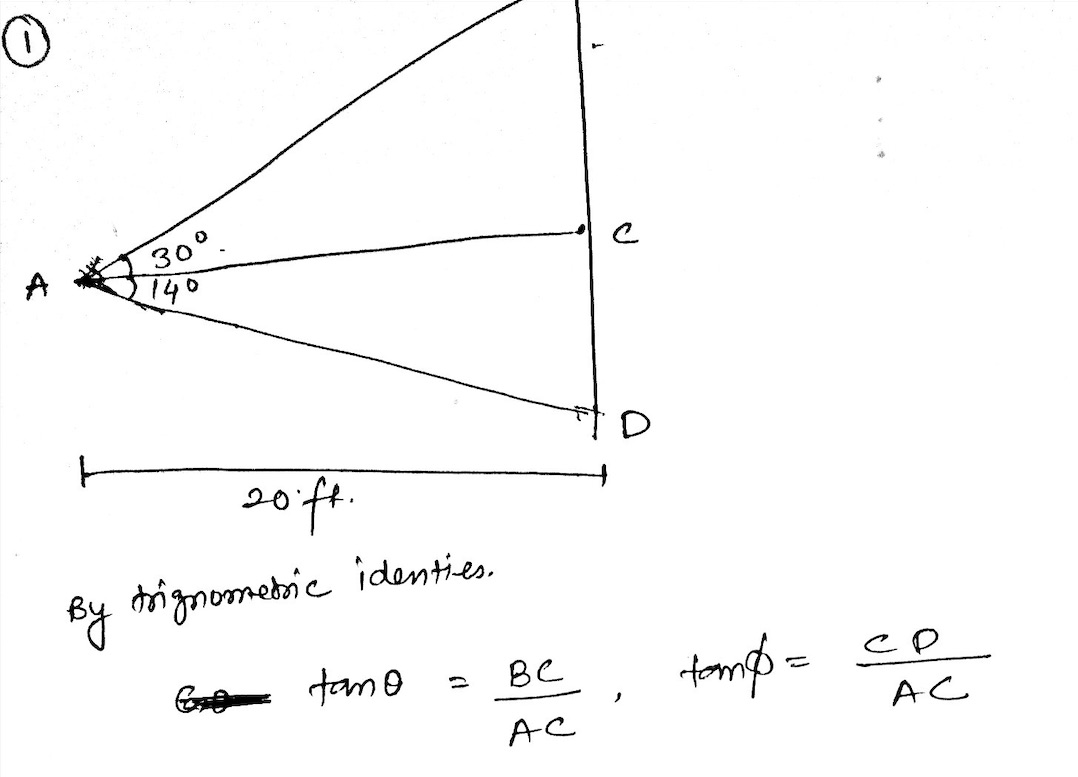 ①
30°
A
14°
C
D
20 ft.
By trignometric identies.
tan θ = BC / AC , tan ϕ = CD / AC